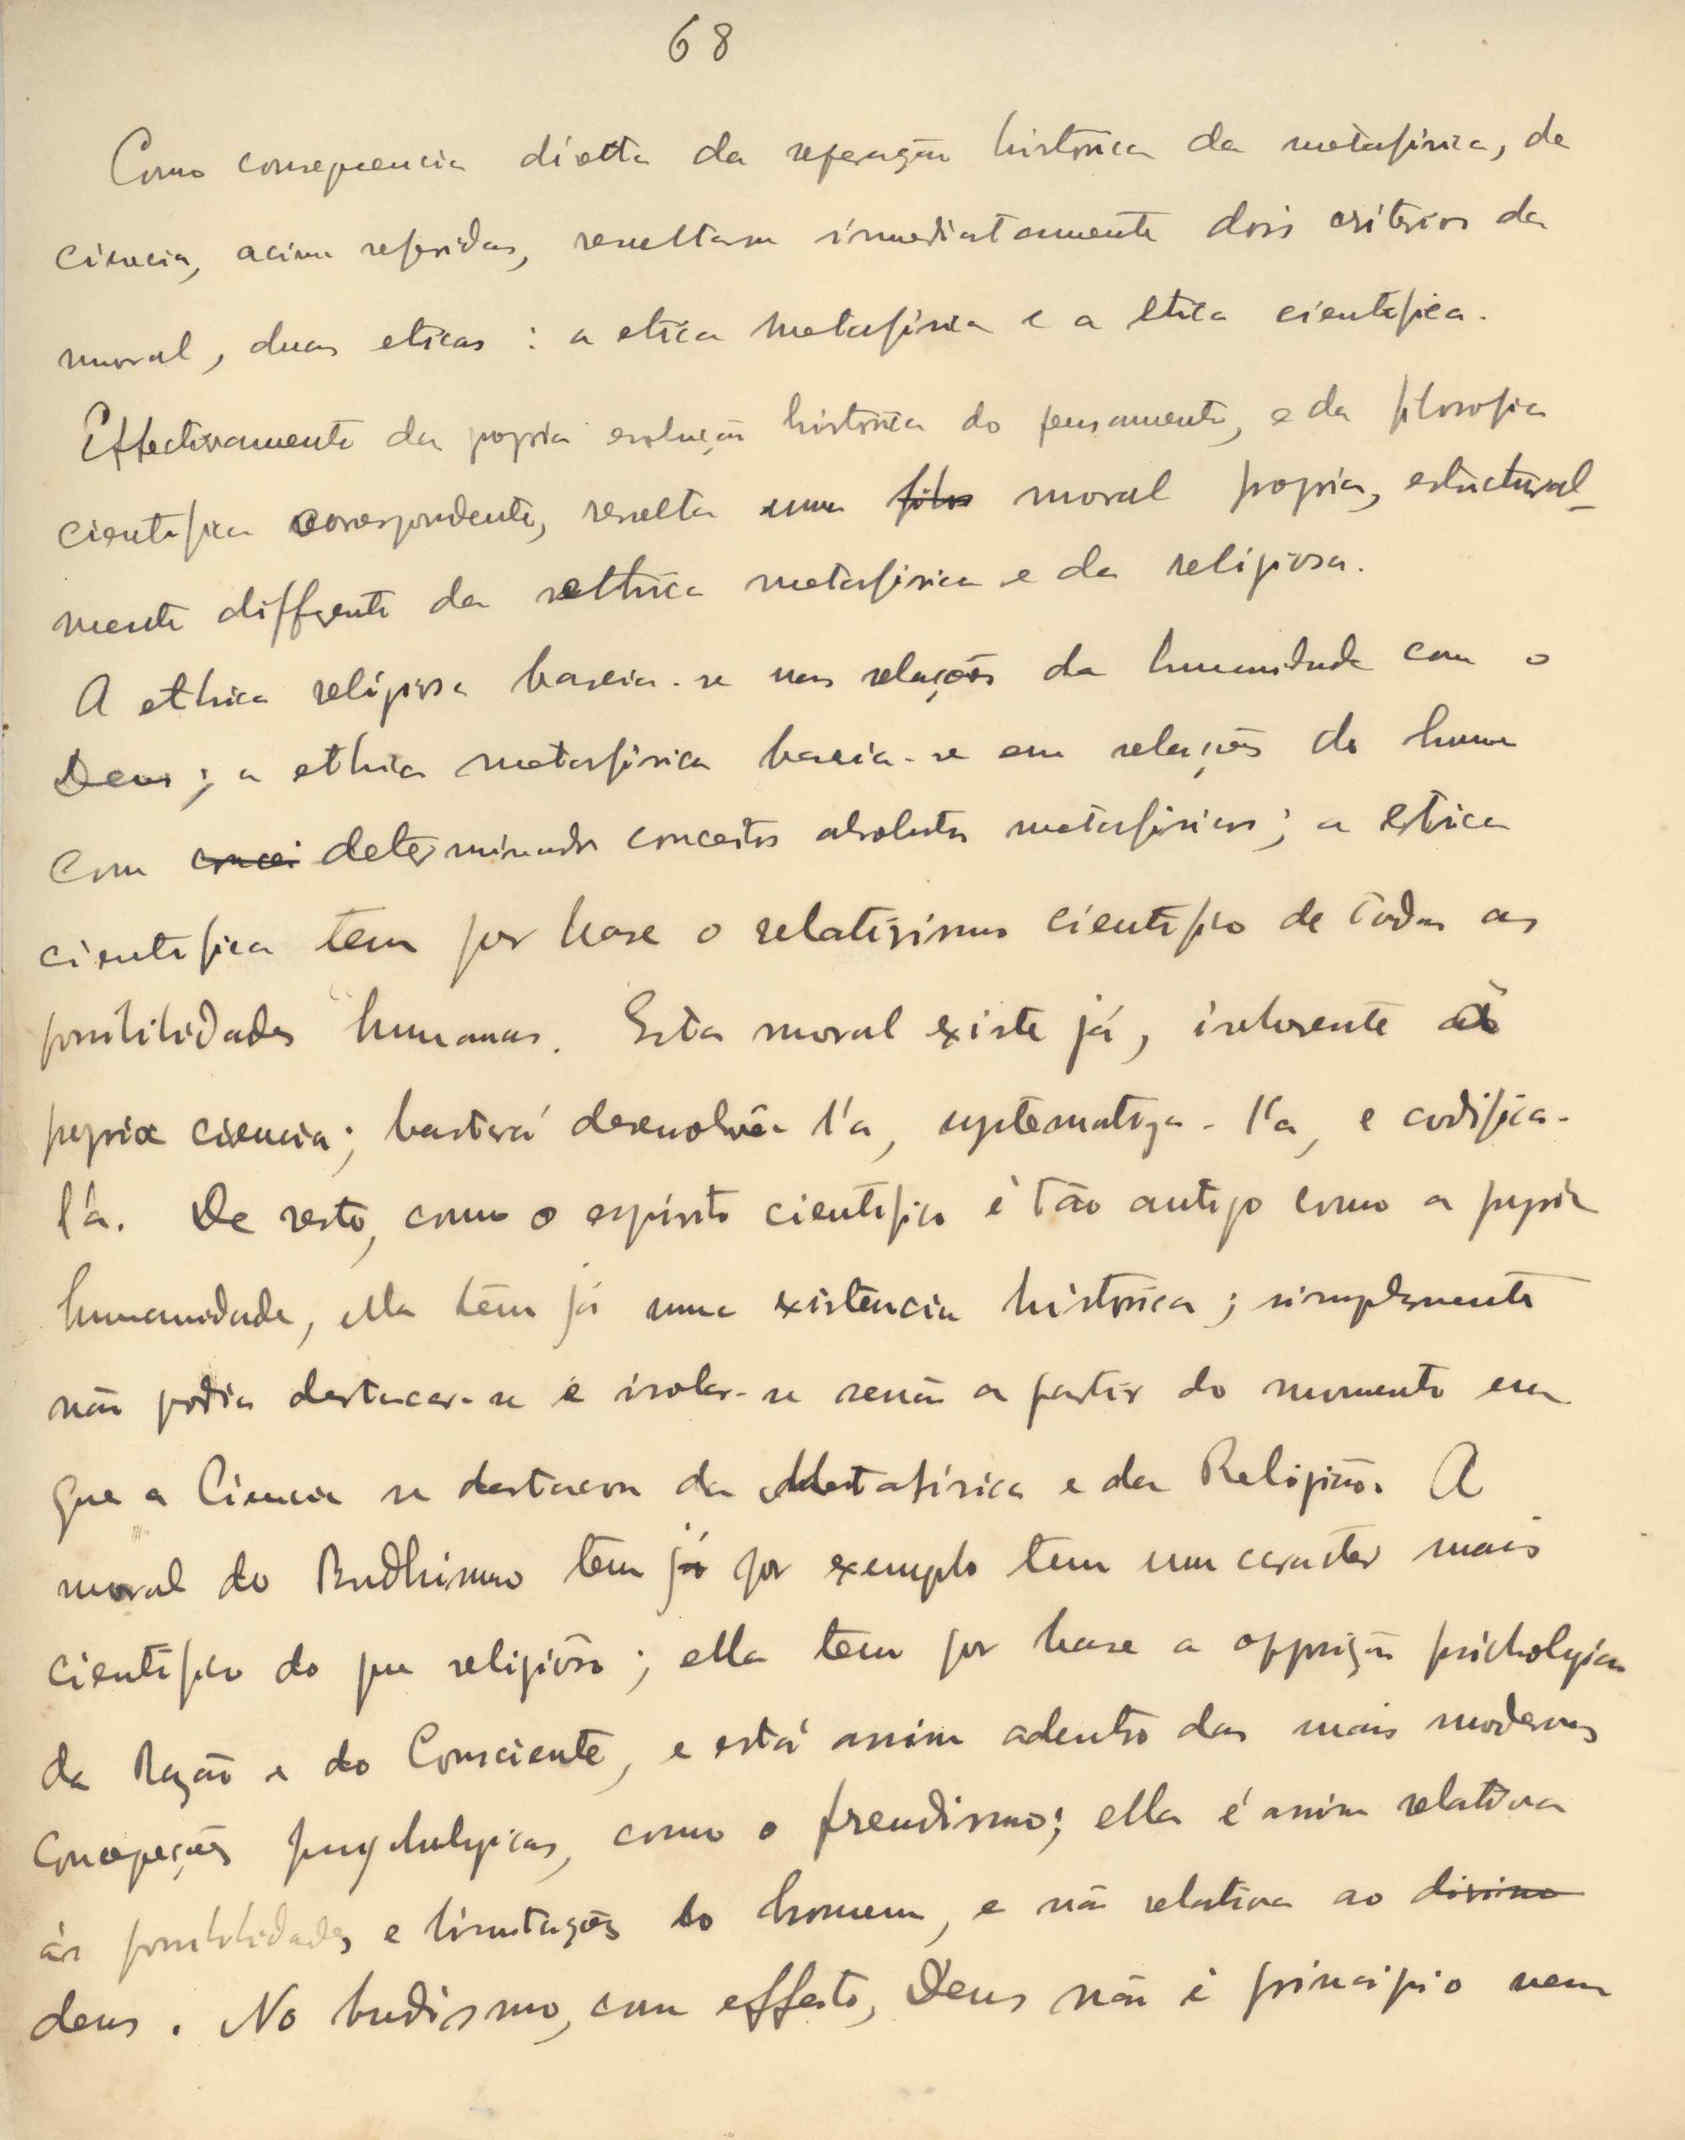 68
Como consequencia directa da separação historica da metafisica, da
ciencia, acima referidas, resultam immediatamente dois criterios da
moral, duas eticas : a etica metafisica e a etica cientifica.
Effectivamente da propria evolução historica do pensamento, e da filosofia
cientifica correspondente, resulta uma filos moral propria, estructural-
mente differente da ethica metafisica e da religiosa.
A ethica religiosa baseia-se nas relações da humanidade com o
Deus ; a ethica metafisica baseia-se em relações do homem
com concei determinados conceitos absolutos metafisicos ; a etica
cientifica tem por base o relativismo cientifico de todas as
possibilidades humanas. Esta moral existe já, inherente á
propria ciencia ; bastará desenvolvê-l'a, systematiza-l'a, e codifica-
l'a. De resto, como o espirito cientifico é tão antigo como a propria
humanidade, ella têm já uma existencia historica ; simplesmente
não podia destacar-se e isolar-se senão a partir do momento em
que a Ciencia se destacou da Metafisica e da Religião. A
moral do Budhismo tem já por exemplo tem um caracter mais
cientifico do que religioso ; ella tem por base a opposição psichologica
da Razão e do Consciente, e está assim adentro das mais modernas
concepções psychologicas, como o freudismo ; ella é assim relativa
ás possibilidades e limitações do homem, e não relativa ao divino
deus. No budismo, com effeito, Deus não é principio nem